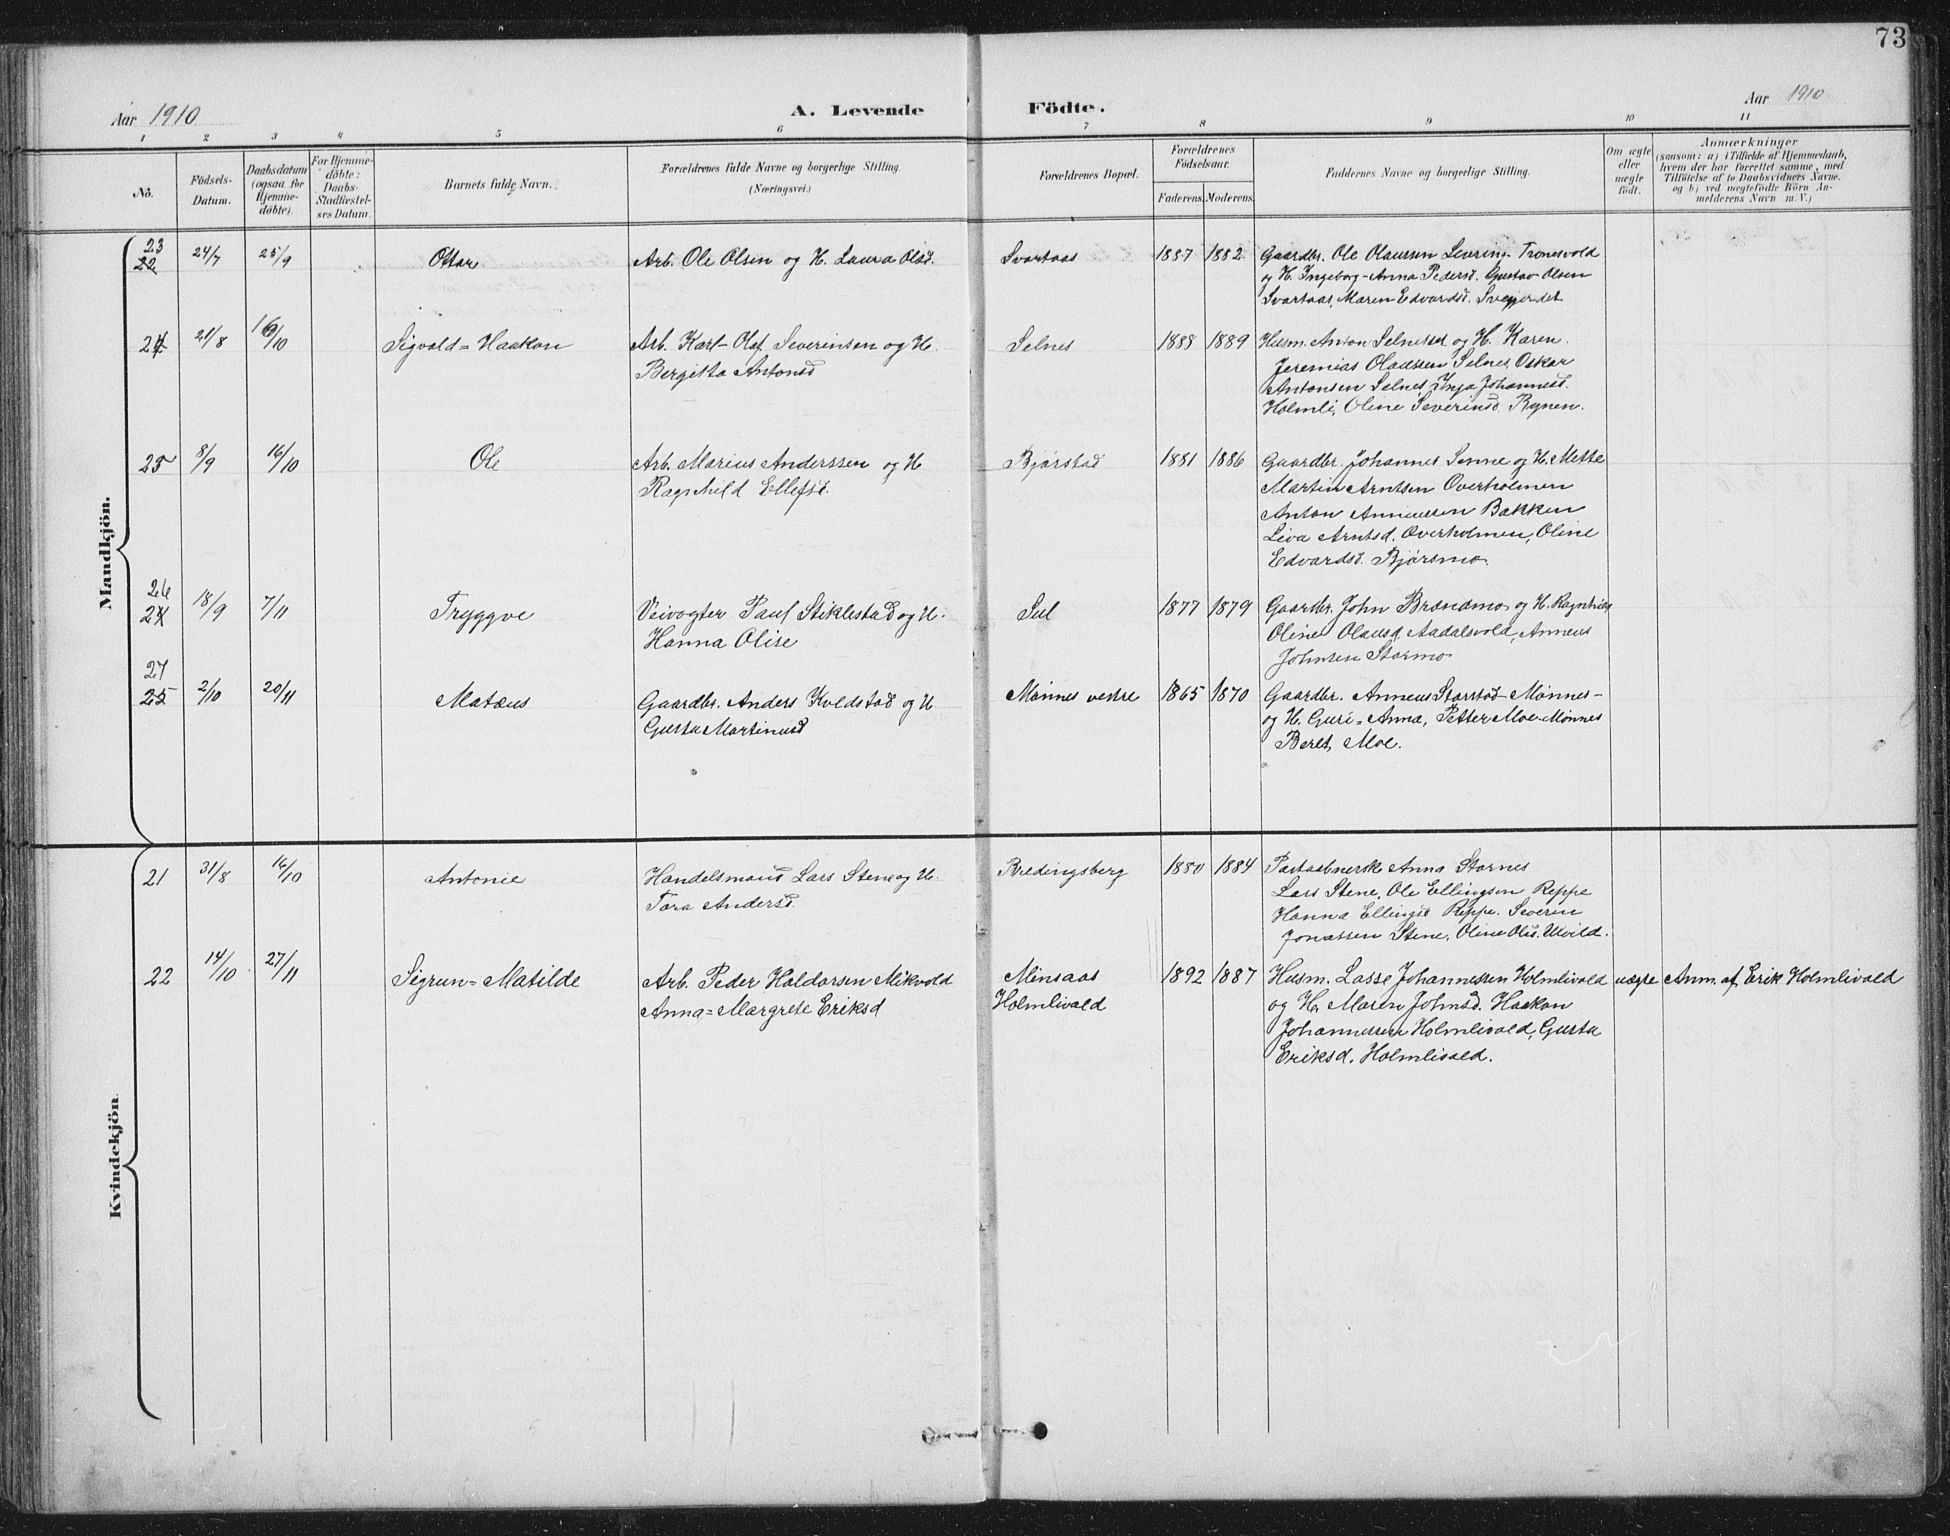 73
Aar 1910
A. Levende Födte.
Aar 1910
1 2 3 4 5 6 7 8 9 10 11
No.
Födsels-Datum.
Daabsdatum (ogsaa for Hjemmedöbte).
For Hjemmedöbte: Daabs-Stadfæstelses Datum.
Barnets fulde Navn.
Forældrenes fulde Navne og borgerlige Stilling.
(Næringsvei.)
Forældrenes Bopæl.
Forældrenes Födselsaar.
Faderens. Moderens.
Faddernes Navne og borgerlige Stilling.
Om ægte eller uægte födt.
Anmærkninger
(saasom: a) i Tilfælde af Hjemmedaab,
hvem der har forrettet samme, med
Tilföielse af to Daabsvidners Navne.
og b) ved uægtefödte Börn An-
melderens Navn m. V.)
Mandkjön.
23
22 24/7 25/9 Ottar Arb. Ole Olsen og H. Laura Olsd. Svartaas 1887 1882 Gaardbr. Ole Olaussen Levring-Tronesvold
og H. Ingeborg-Anna Pedersd. Gustav Olsen
Svartaas, Maren Edvardsd.
24 21/8 16/10 Sigvald-Haakon Arb. Karl-Olaf Severinsen og H. Selnes 1888 1889 Husm. Anton Selneset og H. Karen.
Bergitta Antonsd
Jeremias Olaussen Selnes, Oskar
Antonsen Selnes, Inga Johannesd.
Holmli, Oline Severinsd Rynen.
25 8/9 16/10 Ole Arb. Marius Anderssen og H Bjørstad 1881 1886 Gaardbr. Johannes Inne og H. Mette
Ragnhild Ellefsd.
Martin Arntsen Overholmen
Anton Anneussen Bakken
Liva Arntsd. Overholmen, Oline
Edvardsd. Bjørsmo.
26
24 18/9 7/11 Tryggve Veivogter Paul Stiklestad og H. Sul 1877 1879 Gaardbr. John Brændmo og H. Ragnhild
Hanna Olise
Oline Olausd. Aadalsvold, Anneus
Johnsen Stormo
27
25 2/10 20/11 Matæus Gaardbr. Anders Kvldstad og H Mønnes vestre 1865 1870 Gaardbr. Anneus Storstad-Mønnes-
Gusta Martinusd
og H. Guri-Anna, Petter Moe-Mønnes
Beret, Moe.
Kvindekjön.
21 31/8 16/10 Antonie Handelsmand Lars Stene og H. Bredingsberg 1880 1884 Postaabnersk Anna Stornes
Tora Andersd.
Lars Stene, Ole Ellingsen Reppe
Hanna Ellingsd Reppe. Severin
Jonassen Stene, Oline Olsd. Ulvild.
22 14/10 27/11 Sigrun-Matilde Arb. Peder Haldorsen Mikvold Minsaas 1892 1887 Husm. Lasse Johannessen Holmlivald uægte Anm. af Erik Holmlivald
Anna-Margrete Eriksd Holmlivald
og H. Maren Johnsd. Haakon
Johannessen Holmlivald, Gusta
Eriksd. Holmlivald.